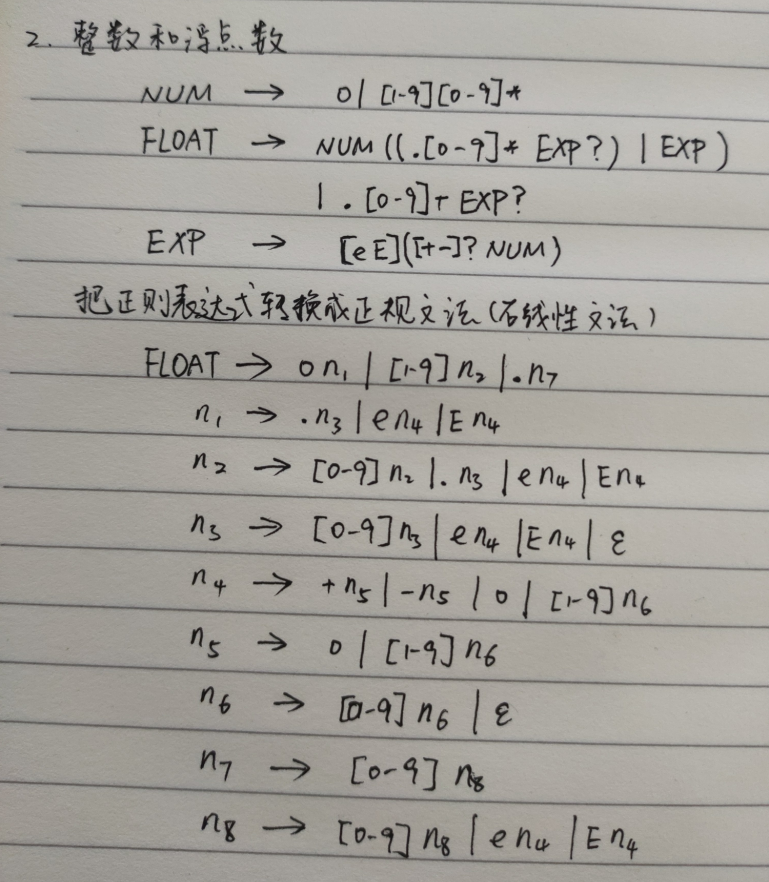 2. 整数和浮点数
NUM → 0 | [1-9][0-9]*
FLOAT → NUM ((.[0-9]* EXP?) | EXP)
| . [0-9]+ EXP?
EXP → [eE]([+-]? NUM)
把正则表达式转换成正规文法(右线性文法)
FLOAT → 0 n₁ | [1-9] n₂ | .n₇
n₁ → .n₃ | e n₄ | E n₄
n₂ → [0-9] n₂ | . n₃ | e n₄ | E n₄
n₃ → [0-9] n₃ | e n₄ | E n₄ | ε
n₄ → + n₅ | - n₅ | 0 | [1-9] n₆
n₅ → 0 | [1-9] n₆
n₆ → [0-9] n₆ | ε
n₇ → [0-9] n₈
n₈ → [0-9] n₈ | e n₄ | E n₄